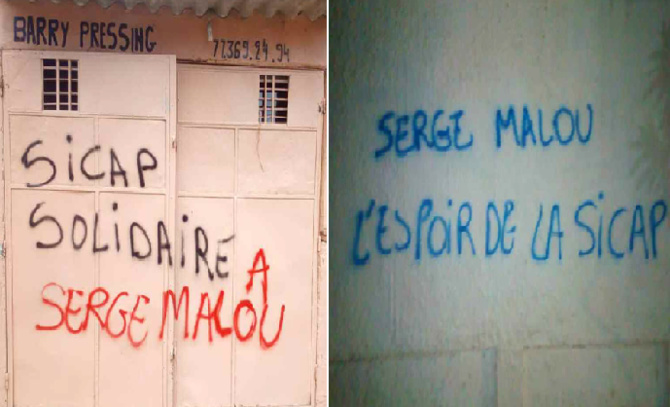 BARRY PRESSING
77.369.24.94
SiCAP
SOLiDAiRE
A
SERGE MALOU
SERGE MALOU
L'ESPOiR DE LA SiCAP